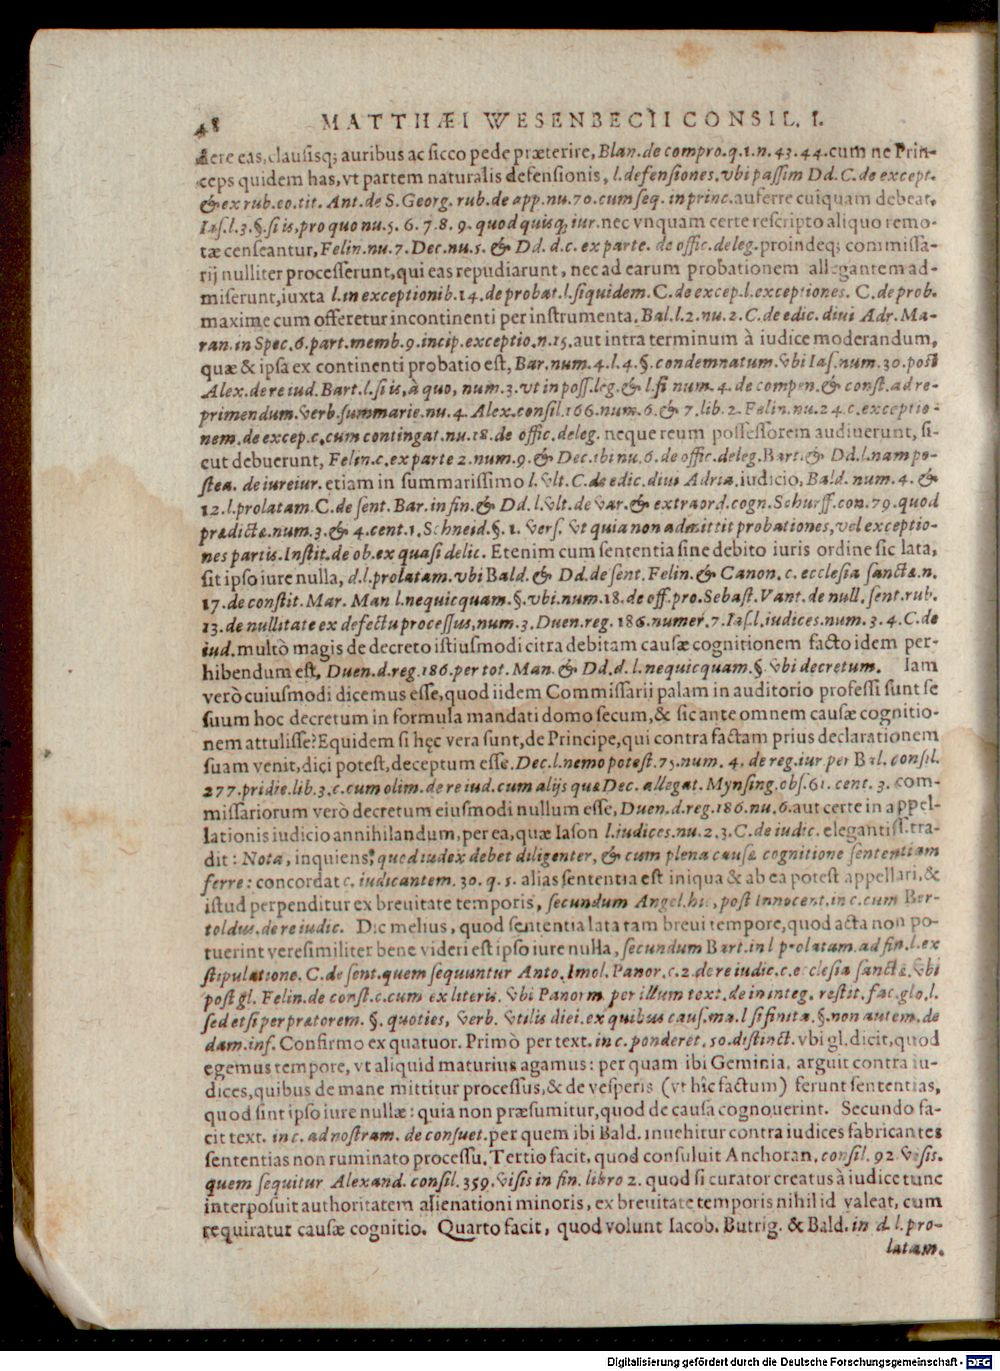 48 MATTHÆI WESENBECII CONSIL. I.
dere eas, clausisq; auribus ac sicco pede præterire, Blan. de compro. q. 1. n. 43. 44. cum ne Prin-
ceps quidem has, vt partem naturalis defensionis, l. defensiones. vbi passim Dd. C. de except.
& ex rub. eo. tit. Ant. de S. Georg. rub. de app. nu. 70. cum seq. in princ. auferre cuiquam debeat,
Ias. l. 3. §. si is, pro quo nu. 5. 6. 7. 8. 9. quod quisq; iur. nec vnquam certe rescripto aliquo remo-
tæ censeantur, Felin. nu. 7. Dec. nu. 5. & Dd. d. c. ex parte. de offic. deleg. proindeq; commissa-
rij nulliter processerunt, qui eas repudiarunt, nec ad earum probationem allegantem ad-
miserunt, iuxta l. in exceptionib. 14. de probat. l. siquidem. C. de excep. l. exceptiones. C. de prob.
maxime cum offeretur incontinenti per instrumenta, Bal. l. 2. nu. 2. C. de edic. diui Adr. Ma-
ran. in Spec. 6. part. memb. 9. incip. exceptio. n. 15. aut intra terminum à iudice moderandum,
quæ & ipsa ex continenti probatio est, Bar. num. 4. l. 4. §. condemnatum. vbi Ias. num. 30. post
Alex. de re iud. Bart. l. si is, à quo, num. 3. vt in poss. leg. & l. fi num. 4. de compen. & const. ad re-
primendum. verb. summarie. nu. 4. Alex. consil. 166. num. 6. & 7. lib. 2. Felin. nu. 24. c. exceptio-
nem. de excep. c. cum contingat. nu. 18. de offic. deleg. neque reum possessorem audiuerunt, si-
cut debuerunt, Felin. c. ex parte 2. num. 9. & Dec. ibi nu. 6. de offic. deleg. Bart. & Dd. l. nam po-
stea. de iureiur. etiam in summarissimo l. vlt. C. de edic. diui Adria. iudicio, Bald. num. 4. &
12. l. prolatam. C. de sent. Bar. in fin. & Dd. l. vlt. de var. & extraord. cogn. Schurff. con. 79. quod
prædicta. num. 3. & 4. cent. 1. Schneid. §. 1. vers. vt quia non admittit probationes, vel exceptio-
nes partis. Instit. de ob. ex quasi delic. Etenim cum sententia sine debito iuris ordine sic lata,
sit ipso iure nulla, d. l. prolatam. vbi Bald. & Dd. de sent. Felin. & Canon. c. ecclesia sanctæ. n.
17. de constit. Mar. Man l. nequicquam. §. vbi. num. 18. de off. pro. Sebast. Vant. de null. sent. rub.
13. de nullitate ex defectu processus, num. 3. Duen. reg. 186. numer. 7. Ias. l. iudices. num. 3. 4. C. de
iud. multò magis de decreto istiusmodi citra debitam causæ cognitionem facto idem per-
hibendum est, Duen. d. reg. 186. per tot. Man. & Dd. d. l. nequicquam. §. vbi decretum. Iam
verò cuiusmodi dicemus esse, quod iidem Commissarii palam in auditorio professi sunt se
suum hoc decretum in formula mandati domo secum, & sic ante omnem causæ cognitio-
nem attulisse? Equidem si hęc vera sunt, de Principe, qui contra factam prius declarationem
suam venit, dici potest, deceptum esse. Dec. l. nemo potest. 75. num. 4. de reg. iur per Bal. consil.
277. pridie. lib. 3. c. cum olim. de re iud. cum alijs quæ Dec. allegat. Mynsing. obs. 61. cent. 3. com-
missariorum verò decretum eiusmodi nullum esse, Duen. d. reg. 186. nu. 6. aut certe in appel-
lationis iudicio annihilandum, per ea, quæ Iason l. iudices. nu. 2. 3. C. de iudic. elegantiss. tra-
dit: Nota, inquiens, quod iudex debet diligenter, & cum plena causæ cognitione sententiam
ferre: concordat c. iudicantem. 30. q. 5. alias sententia est iniqua & ab ea potest appellari, &
istud perpenditur ex breuitate temporis, secundum Angel. hic, post Innocent. in c. cum Ber-
toldus. de re iudic. Dic melius, quod sententia lata tam breui tempore, quod acta non po-
tuerint veresimiliter bene videri est ipso iure nulla, secundum Bart. in l prolatam. ad fin. l. ex
stipulatione. C. de sent. quem sequuntur Anto. Imol. Panor. c. 2. de re iudic. c. ecclesia sanctæ. vbi
post gl. Felin. de const. c. cum ex literis. vbi Panorm. per illum text. de in integ. restit. fac. glo. l.
sed et si per prætorem. §. quoties, verb. vtilis diei. ex quibus caus. ma. l si finita. §. non autem. de
dam. inf. Confirmo ex quatuor. Primò per text. in c. ponderet. 50. distinct. vbi gl. dicit, quod
egemus tempore, vt aliquid maturius agamus: per quam ibi Geminia. arguit contra iu-
dices, quibus de mane mittitur processus, & de vesperis (vt hic factum) ferunt sententias,
quod sint ipso iure nullæ: quia non præsumitur, quod de causa cognouerint. Secundo fa-
cit text. in c. ad nostram. de consuet. per quem ibi Bald. inuehitur contra iudices fabricantes
sententias non ruminato processu. Tertio facit, quod consuluit Anchoran. consil. 92. visis.
quem sequitur Alexand. consil. 359. visis in fin. libro 2. quod si curator creatus à iudice tunc
interposuit authoritatem alienationi minoris, ex breuitate temporis nihil id valeat, cum
requiratur causæ cognitio. Quarto facit, quod volunt Iacob. Butrig. & Bald. in d. l. pro-
latam.
Digitalisierung gefördert durch die Deutsche Forschungsgemeinschaft - DFG